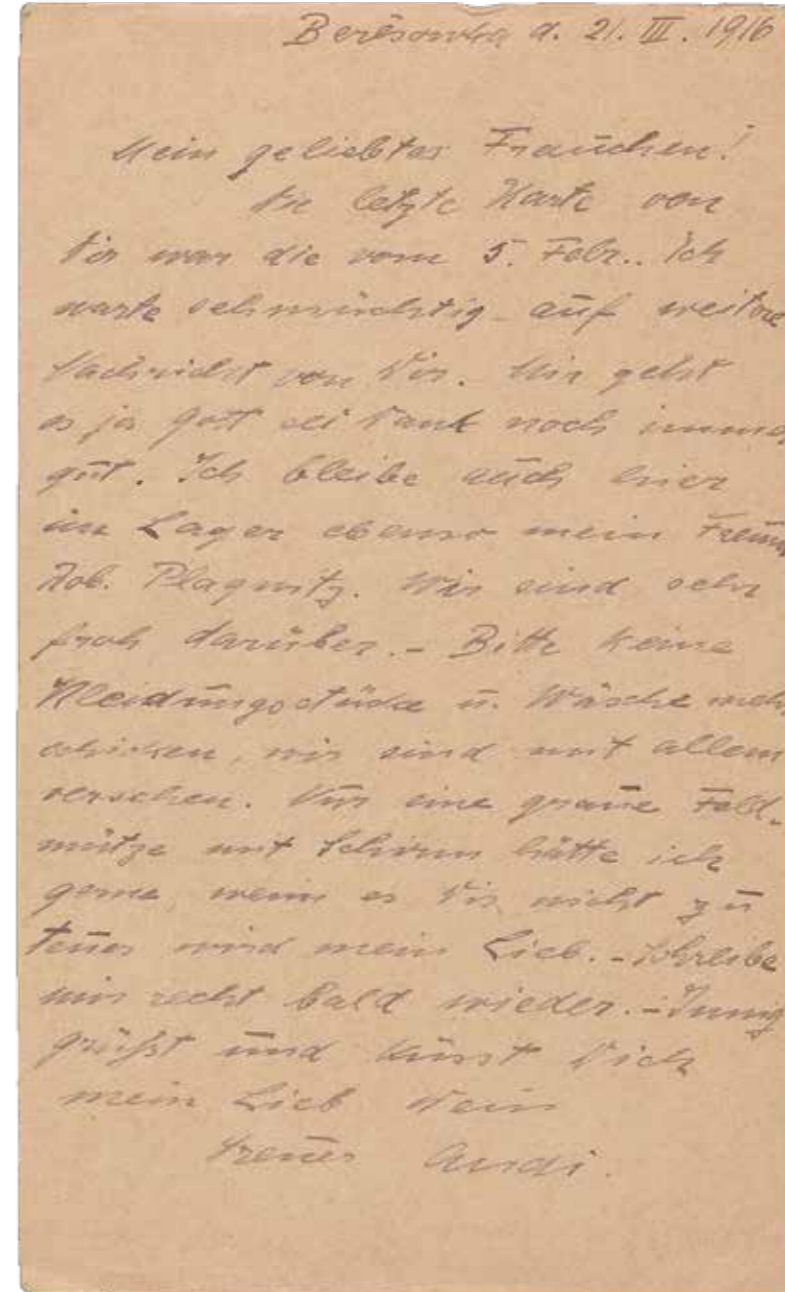 Berēsowka d. 21. III. 1916
Mein geliebtes Frauchen!
Die letzte Karte von
Dir war die vom 5. Febr.. Ich
warte sehnsüchtig auf weitere
Nachricht von Dir. Mir geht
es ja Gott sei Dank noch immer
gut. Ich bleibe auch hier
im Lager ebenso mein Freund
Rob. Plagwitz. Wir sind sehr
froh darüber. - Bitte keine
Kleidungsstücke u. Wäsche mehr
schicken, wir sind mit allem
versehen. Nur eine graue Feld-
mütze mit Schirm hätte ich
gerne, wenn es Dir nicht zu
teuer wird mein Lieb. - Schreibe
mir recht bald wieder. - Innig
grüßt und küsst Dich
mein Lieb Dein
treuer